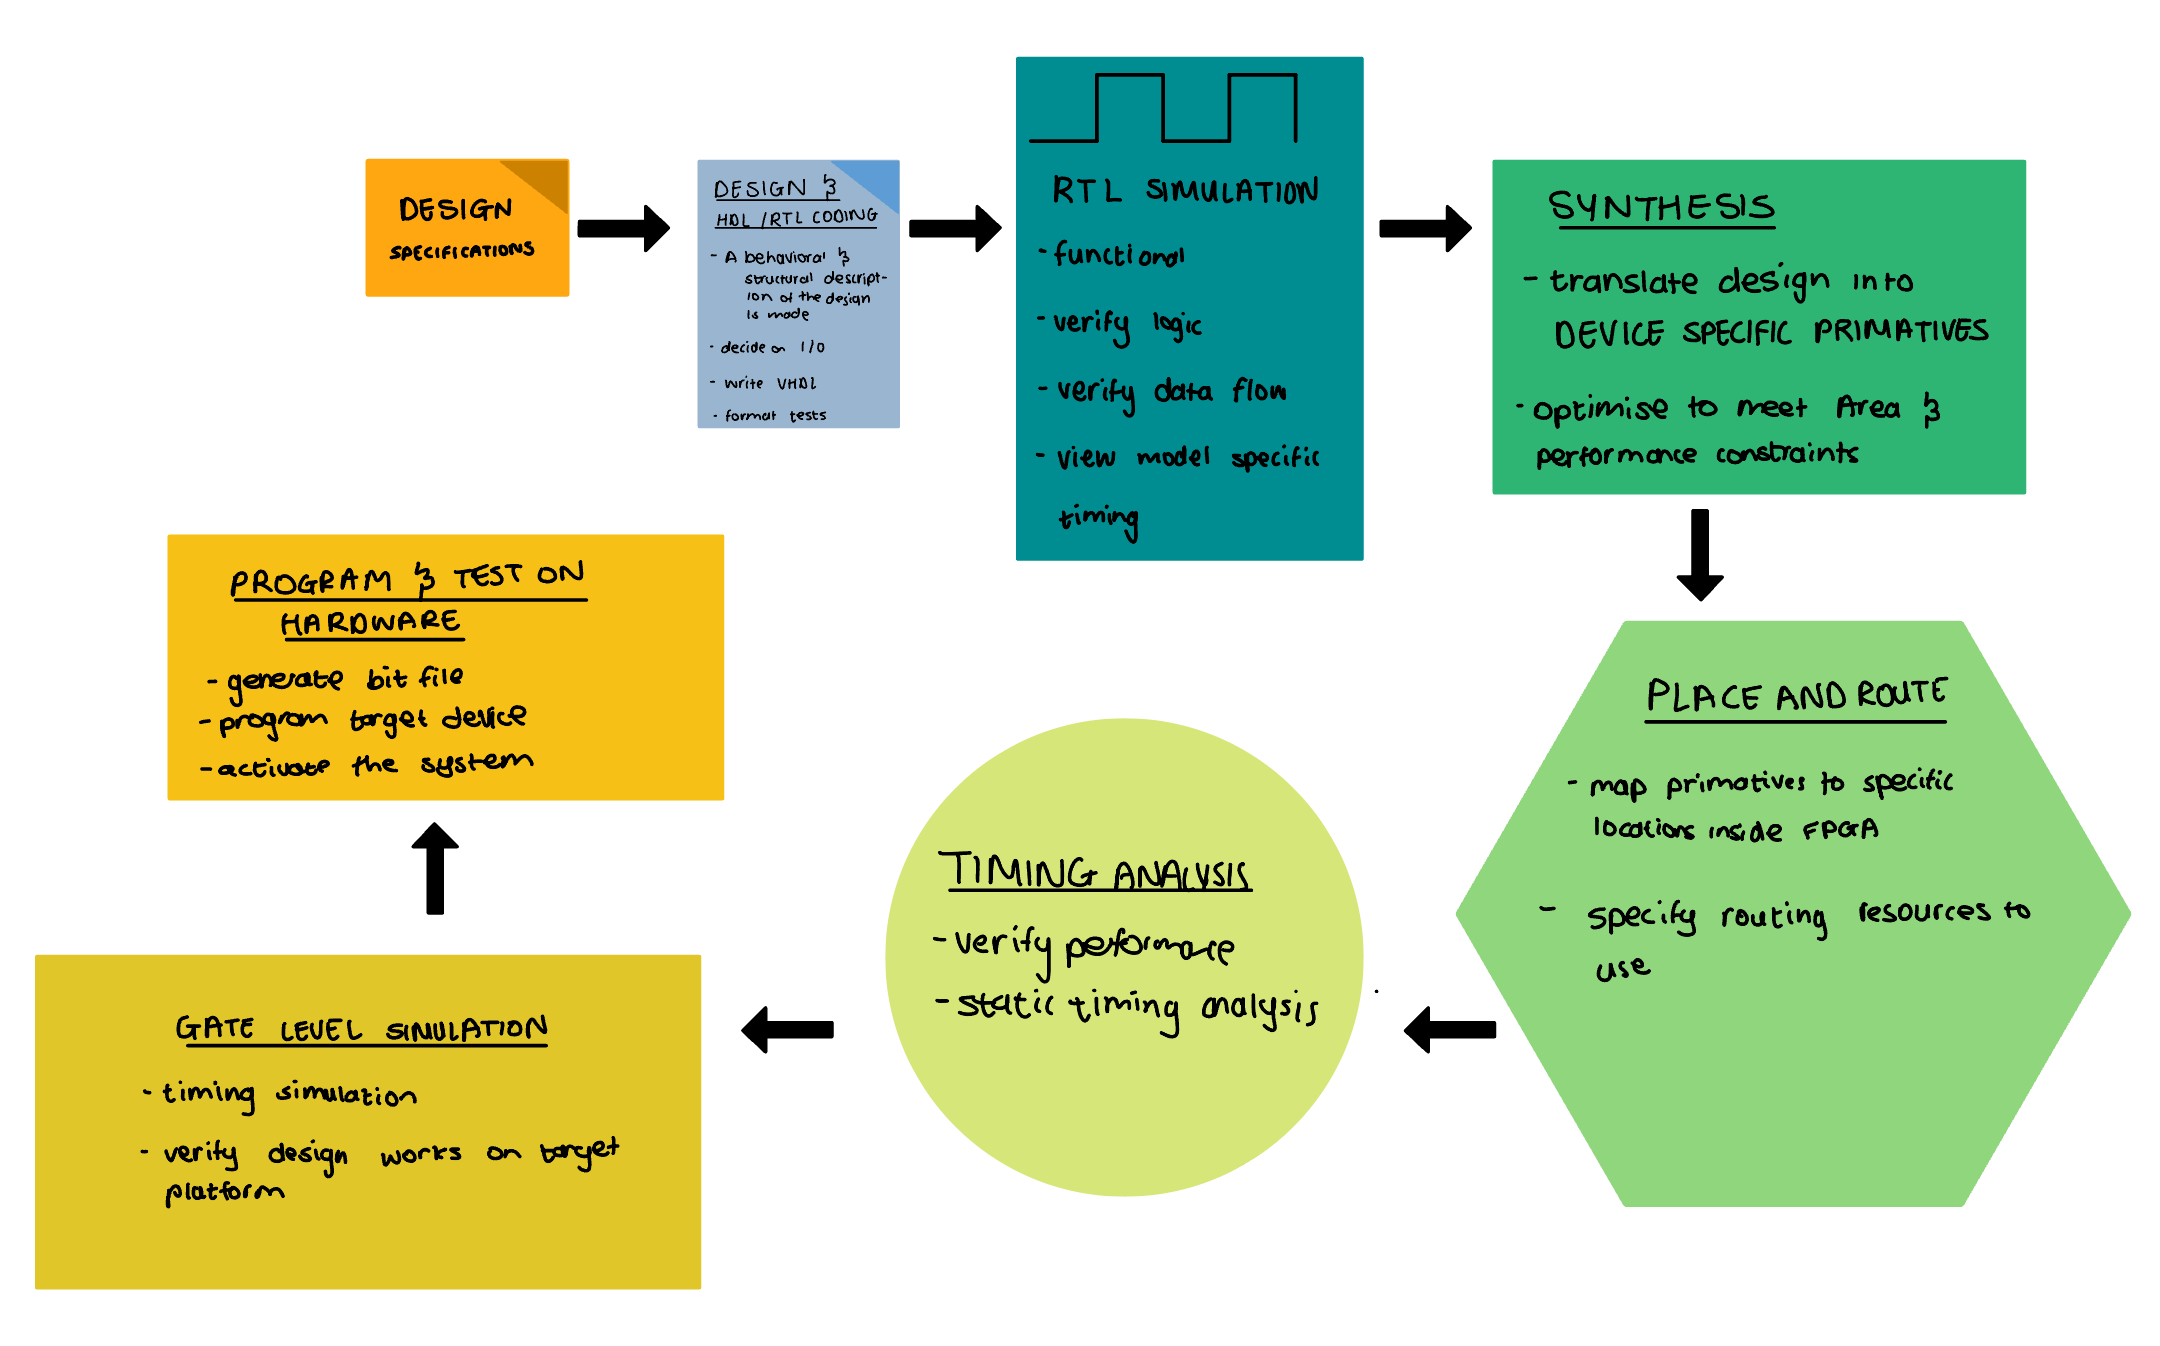 DESIGN
SPECIFICATIONS
DESIGN &
HDL/RTL CODING
- A behavioral &
structural descript-
ion of the design
is made
- decide on I/O
- write VHDL
- format tests
RTL SIMULATION
- functional
- verify logic
- verify data flow
- view model specific
timing
SYNTHESIS
- translate design into
DEVICE SPECIFIC PRIMATIVES
- optimise to meet Area &
performance constraints
PLACE AND ROUTE
- map primatives to specific
locations inside FPGA
- specify routing resources to
use
TIMING ANALYSIS
- verify peformance
- static timing analysis
GATE LEVEL SIMULATION
- timing simulation
- verify design works on target
platform
PROGRAM & TEST ON
HARDWARE
- generate bit file
- program target device
- activate the system